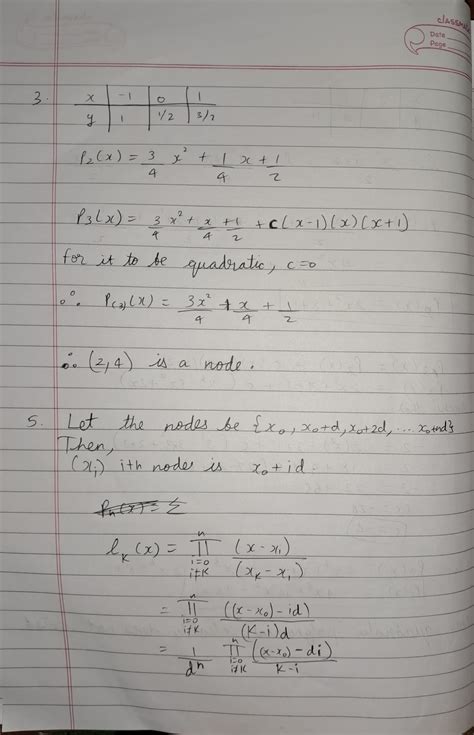 classmate
Date
Page
3. x | -1 | 0 | 1
y | 1 | 1/2 | 3/2
P₂(x) = 3/4 x² + 1/4 x + 1/2
P₃(x) = 3/4 x² + x/4 + 1/2 + c(x-1)(x)(x+1)
for it to be quadratic, c=0
∴ P₍₃₎(x) = 3x²/4 + x/4 + 1/2
∴ (2,4) is a node.
5. Let the nodes be {x₀, x₀+d, x₀+2d, ... x₀+nd}
Then,
(xᵢ) ith nodes is x₀+id
Pₙ(x) = Σ
l_K(x) = ∏_{i=0, i≠K}^{n} (x-xᵢ)/(x_K-xᵢ)
= ∏_{i=0, i≠K}^{n} ((x-x₀)-id)/(K-i)d
= 1/dⁿ ∏_{i=0, i≠K}^{n} ((x-x₀)-di)/K-i